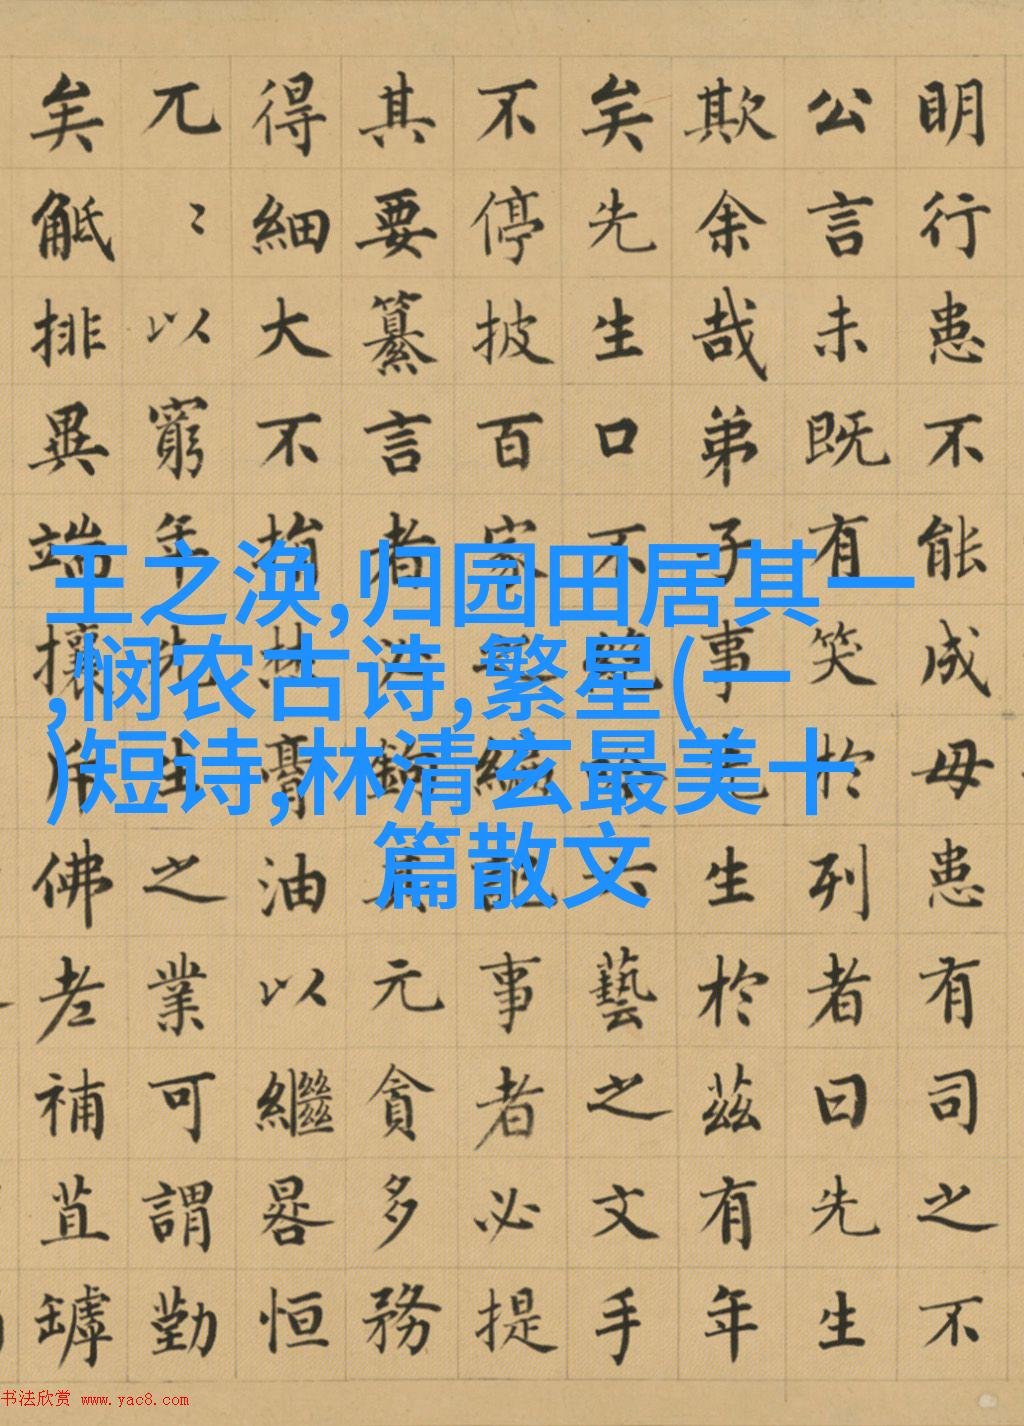 明行患不能成毋患有司之不
公言未既有笑於列者曰先生
欺余哉弟子事先生於茲有年
矣先生口不絶吟六藝之文手
不停披百家之編記事者必提
其要纂言者必鉤其元貪多務
得細大不捐焚膏油以繼晷恒
兀〻以窮年先生之業可謂勤
矣觝排異端攘斥佛老補苴罅
王之涣,归园田居其一
,悯农古诗,繁星(一
)短诗,林清玄最美十
篇散文
书法欣赏 www.yac8.com